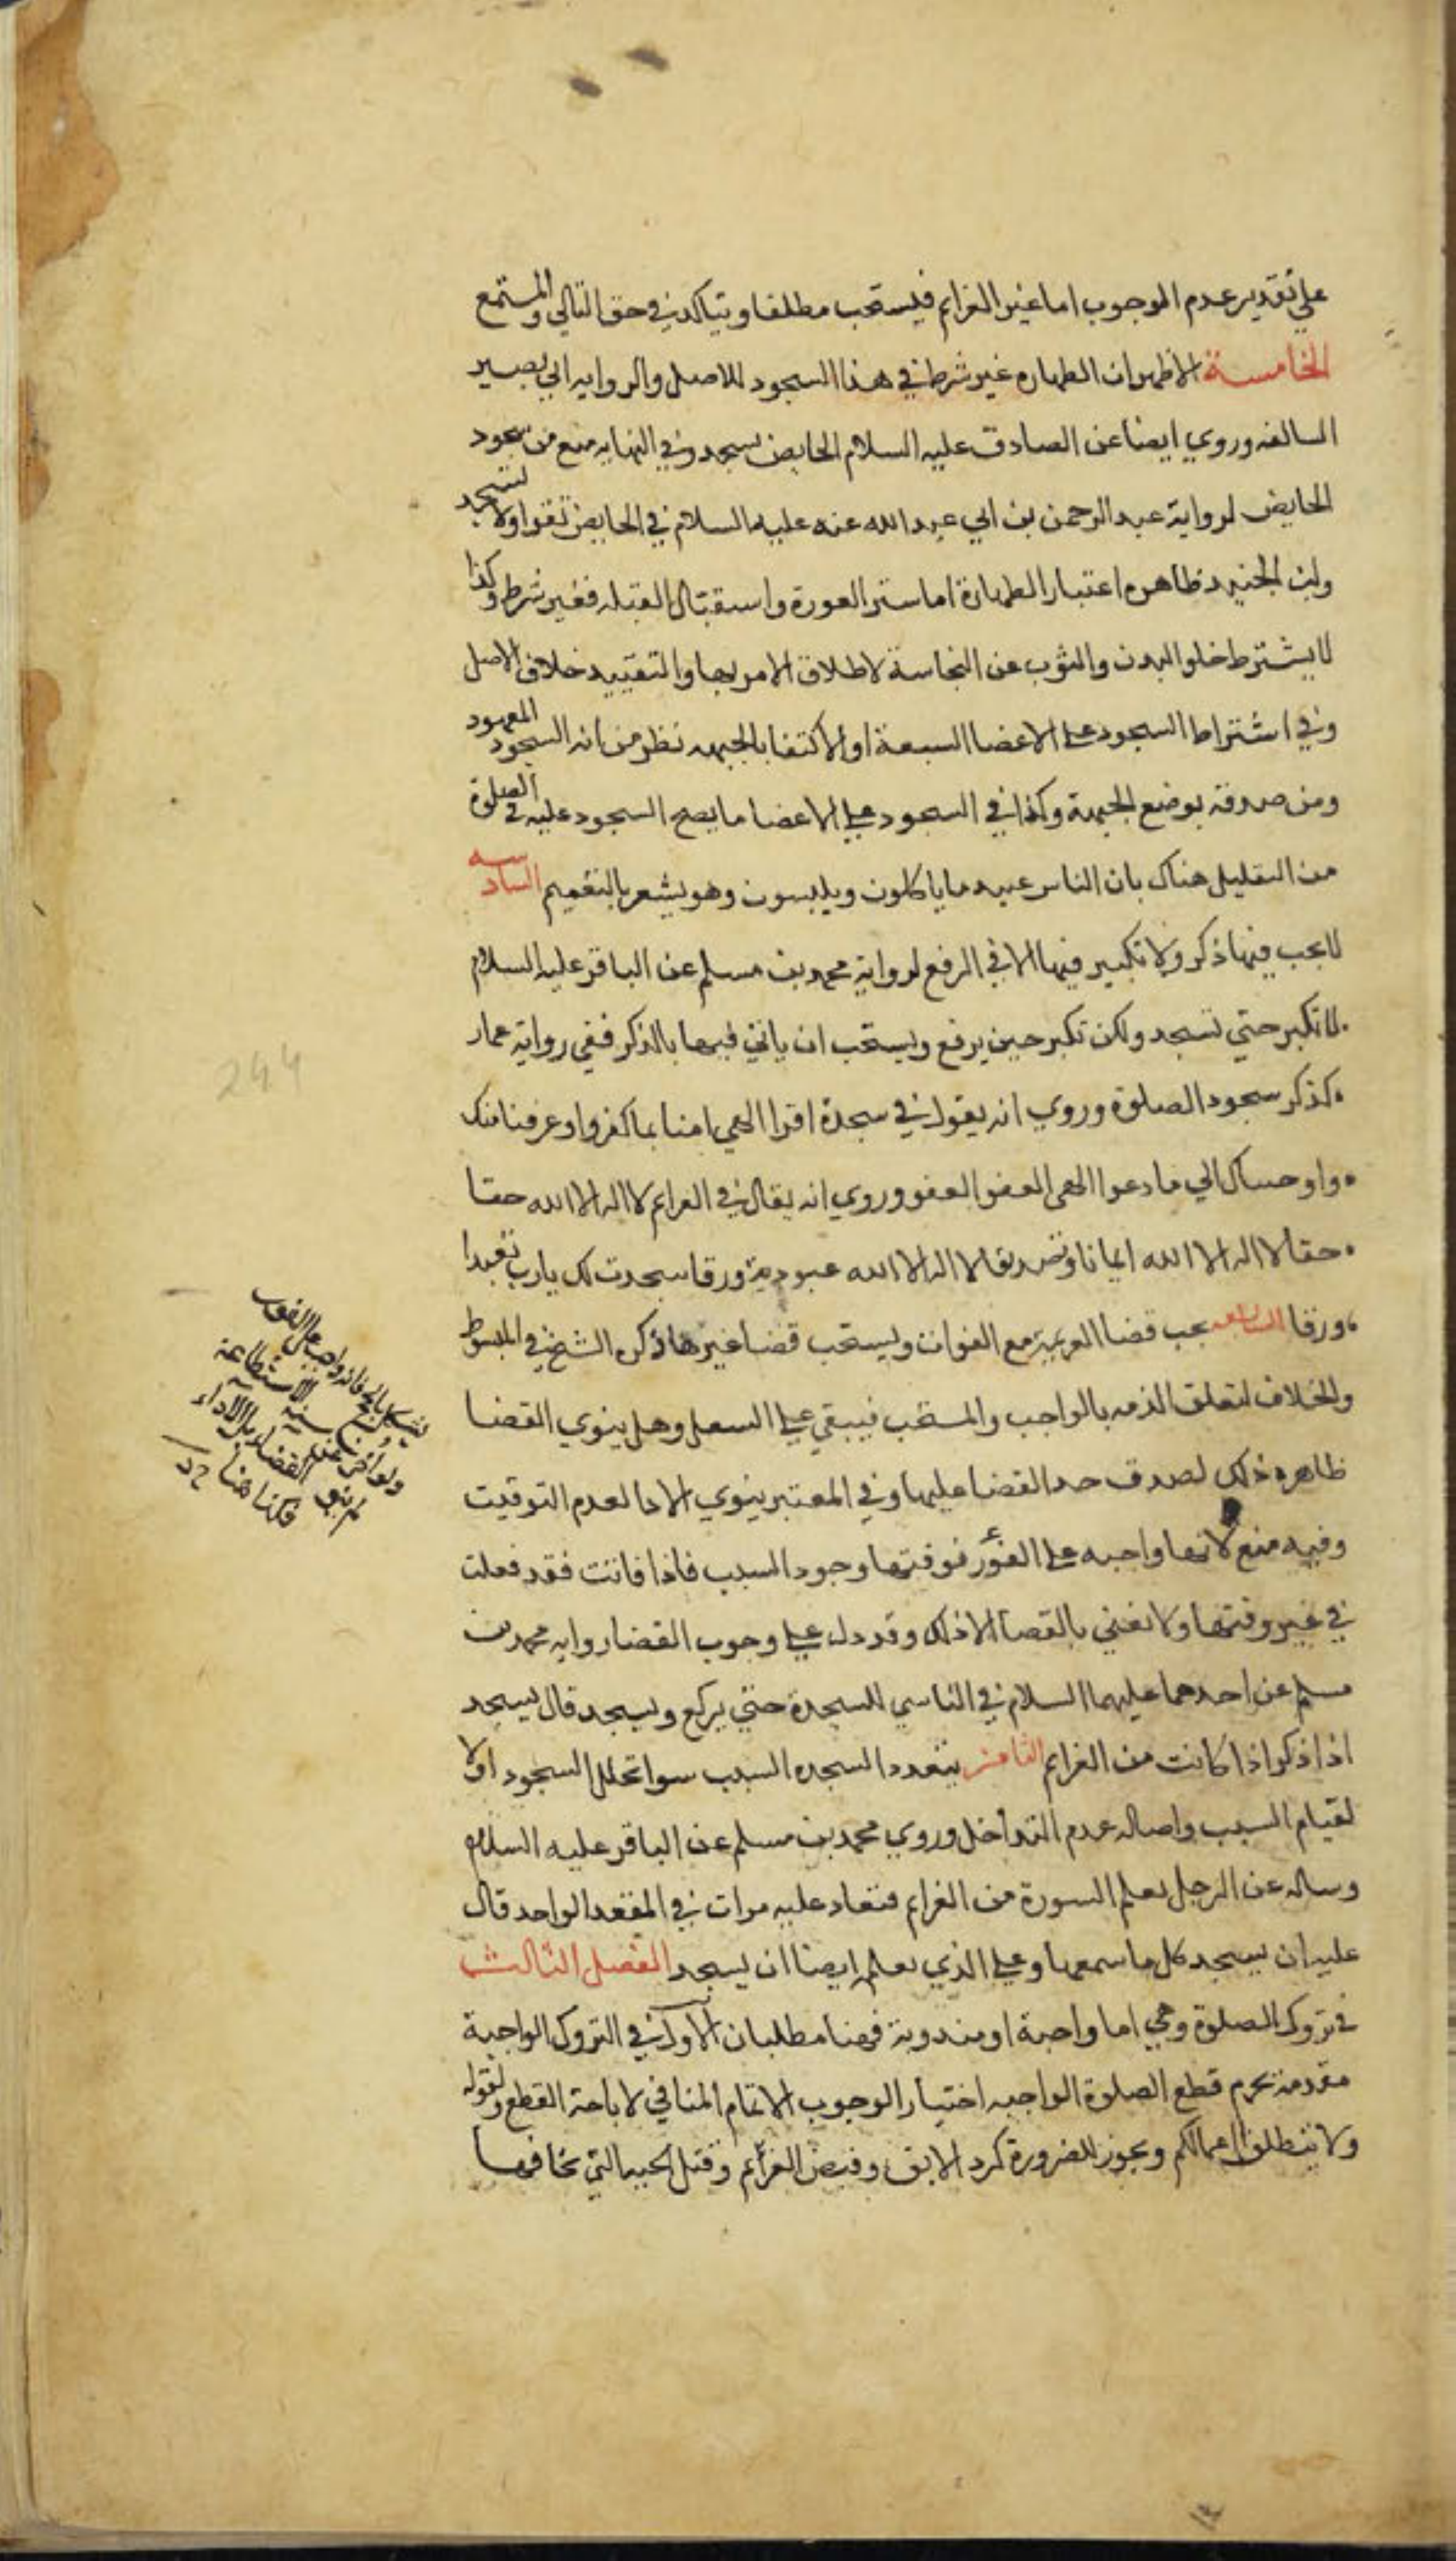 على تقدير عدم الوجوب اما غير العزايم فيستحب مطلقا ويتاكد في حق التالي والمستمع
الخامسة الاظهر ان الطهاره غير شرط في هذا السجود للاصل والروايه ابي بصير
السالفه وروي ايضا عن الصادق عليه السلام الحايض تسجد وفي النهايه منع من سجود
الحايض لرواية عبد الرحمن بن ابي عبد الله عنه عليه السلام في الحايض تقرا ولا تسجد
وابن الجنيد ظاهره اعتبار الطهارة اما ستر العورة واستقبال القبله فغير شرط وكذا
لا يشترط خلو البدن والثوب عن النجاسة لاطلاق الامر بها والتقييد خلاف الاصل
وفي اشتراط السجود على الاعضا السبعة او الاكتفا بالجبهه نظر من انه السجود المعهود
ومن صدقه بوضع الجبهة وكذا في السجود على الاعضا ما يصح السجود عليه في الصلوة
من التعليل هناك بان الناس عبيد ما ياكلون ويلبسون وهو يشعر بالتعميم السادسه
لا يجب فيها ذكر ولا تكبير فيها الا في الرفع لرواية محمد بن مسلم عن الباقر عليه السلام
لا تكبر حتي تسجد ولكن تكبر حين يرفع ويستحب ان ياتي فيها بالذكر ففي رواية عمار
كذكر سجود الصلوة وروي انه يقول في سجدة اقرا الهي امنا بما كفروا وعرفنا منك
وا وحساك الي ما دعوا الهى العفو العفو وروي انه يقال في العزايم لا اله الا الله حقا
حقا لا اله الا الله ايمانا وتصديقا لا اله الا الله عبودية ورقا سجدت لك يا رب تعبدا
ورقا السابعه يجب قضا العزيمة مع الفوات ويستحب قضا غيرها ذكره الشيخ في المبسوط
والخلاف لتعلق الذمه بالواجب والمستحب فيبقي علي السعل وهل ينوي القضا
ظاهره ذلك لصدق حد القضا عليها وفي المعتبر ينوي الادا لعدم التوقيت
وفيه منع لانها واجبه على الفور فوقتها وجود السبب فاذا فاتت فقد فعلت
في غير وقتها ولا نعني بالقضا الا ذلك وقد دل علي وجوب القضا روايه محمد بن
مسلم عن احدهما عليهما السلام في الناسي للسجدة حتي يركع ويسجد قال يسجد
اذا ذكر اذا كانت من العزايم الثامنه يتعدد السجده السبب سوا تخلل السجود اولا
لقيام السبب واصاله عدم التداخل وروي محمد بن مسلم عن الباقر عليه السلام
وساله عن الرجل يعلم السورة من العزايم فتعاد عليه مرات في المقعد الواحد قال
عليه ان يسجد كل ما سمعها وعلي الذي يعلمه ايضا ان يسجد الفصل الثالث
في تروك الصلوة وهي اما واجبة او مندوبة فهنا مطلبان الاول في التروك الواجبة
مقدمة يحرم قطع الصلوة الواجبه اختيارا لوجوب الاتمام المنافي لاباحة القطع ولقوله
ولا تبطلوا اعمالكم ويجوز للضرورة كرد الابق وقبض الغرايم وقتل الحيه التي يخافها
يشكل بالحج فانه واجب على الفور
ولو اخر عن سنة الاستطاعة
لم ينو القضاء بل الاداء
فكذا هنا
244